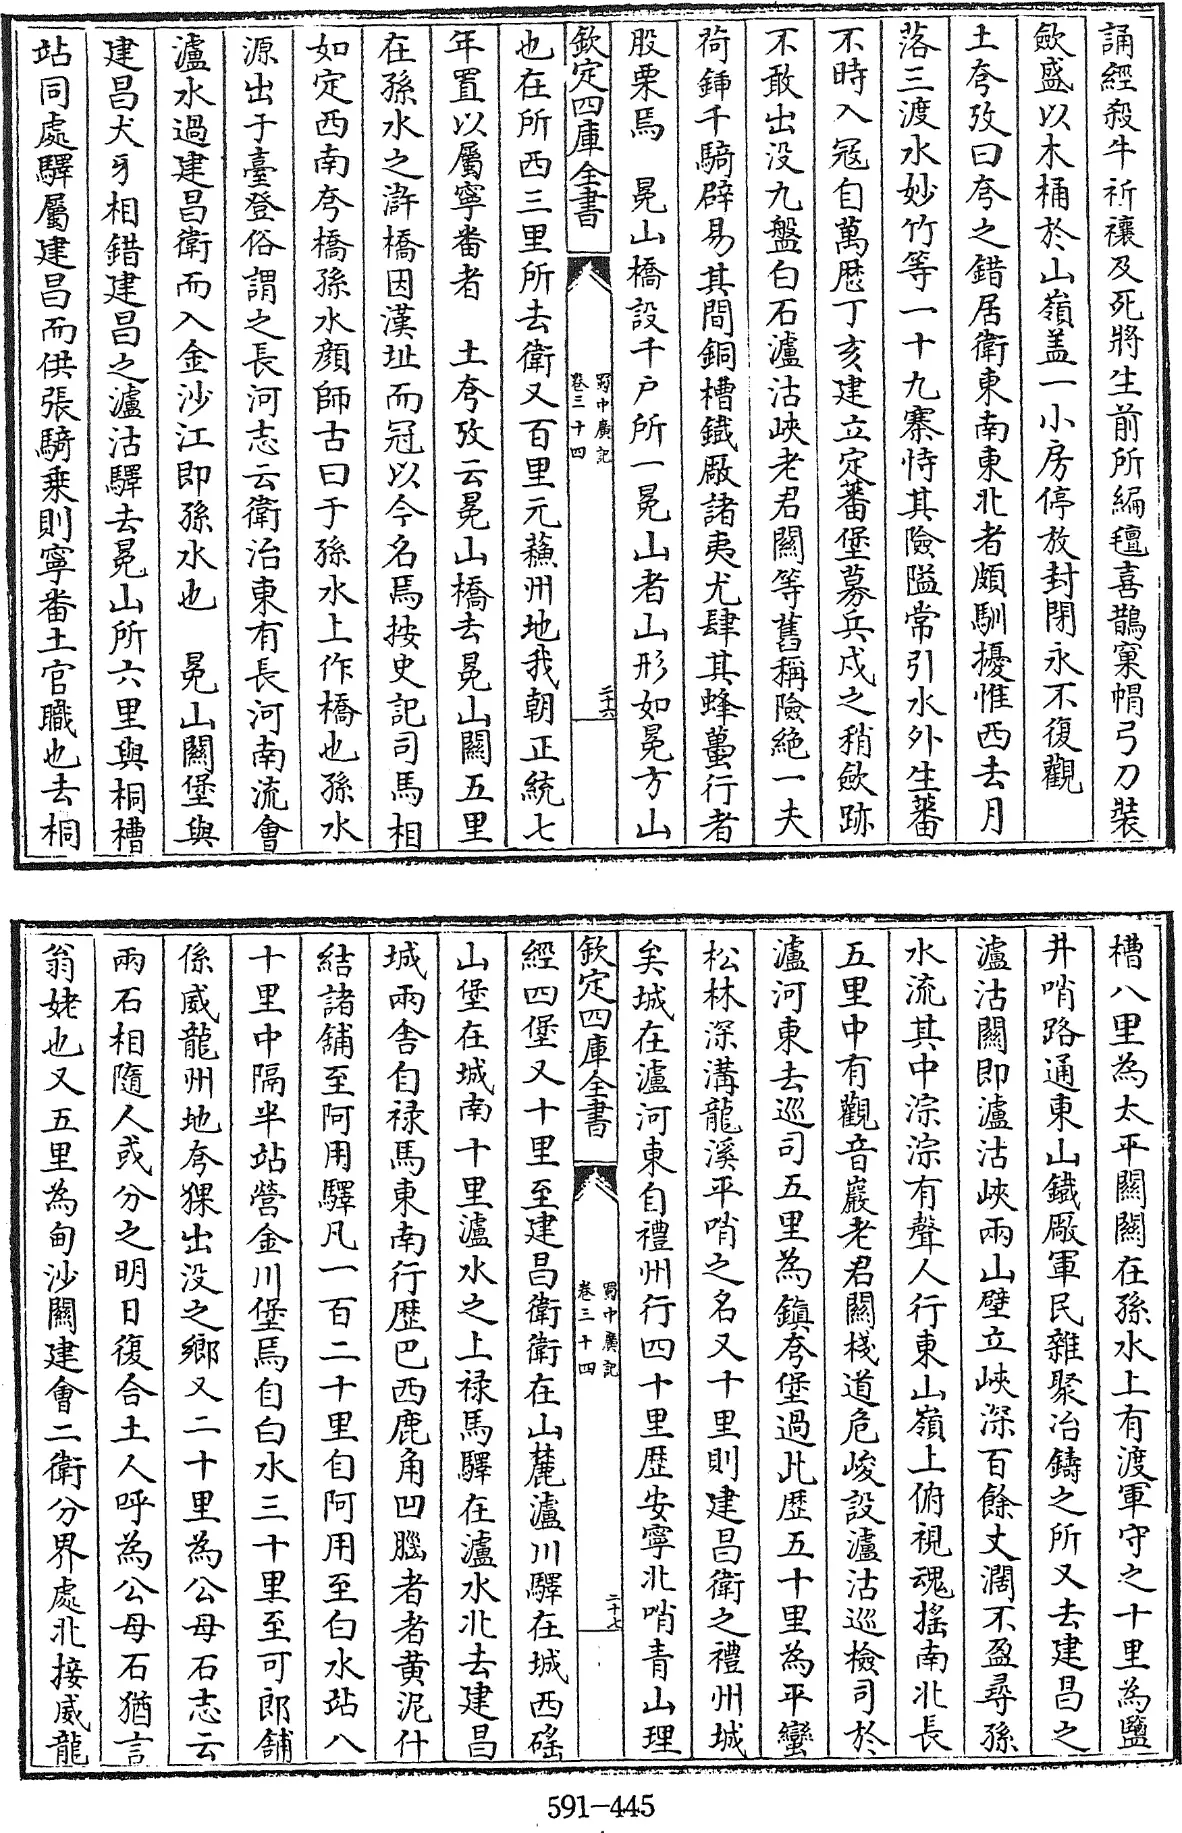 誦經殺牛祈禳及死將生前所編氊喜鵲窠帽弓刀裝
斂盛以木桶於山嶺盖一小房停放封閉永不復觀
土夸攷曰夸之錯居衛東南東北者頗馴擾惟西去月
落三渡水妙竹等一十九寨恃其險隘常引水外生蕃
不時入冦自萬厯丁亥建立定蕃堡募兵戍之稍斂跡
不敢出没九盤白石瀘沽峽老君關等舊稱險絶一夫
荷鍤千騎辟易其間銅槽鐡厰諸夷尤肆其蜂蠆行者
股栗焉　晃山橋設千户所一冕山者山形如冕方山
欽定四庫全書
蜀中廣記
卷三十四
二十六
也在所西三里所去衛又百里元蘓州地我朝正統七
年置以屬寧番者　土夸攷云冕山橋去冕山關五里
在孫水之滸橋因漢址而冠以今名焉按史記司馬相
如定西南夸橋孫水顔師古曰于孫水上作橋也孫水
源出于臺登俗謂之長河志云衛治東有長河南流會
瀘水過建昌衛而入金沙江即孫水也　冕山關堡與
建昌犬牙相錯建昌之瀘沽驛去冕山所六里與桐槽
站同處驛屬建昌而供張騎乗則寧番土官職也去桐
槽八里為太平關關在孫水上有渡軍守之十里為鹽
井哨路通東山鐡厰軍民雜聚冶鑄之所又去建昌之
瀘沽關即瀘沽峽兩山壁立峽深百餘丈濶不盈尋孫
水流其中淙淙有聲人行東山嶺上俯視魂揺南北長
五里中有觀音巖老君關棧道危峻設瀘沽巡檢司於
瀘河東去巡司五里為鎮夸堡過此歴五十里為平蠻
松林深溝龍溪平哨之名又十里則建昌衛之禮州城
矣城在瀘河東自禮州行四十里歴安寧北哨青山理
欽定四庫全書
蜀中廣記
卷三十四
二十七
經四堡又十里至建昌衛衛在山麓瀘川驛在城西磘
山堡在城南十里瀘水之上禄馬驛在瀘水北去建昌
城兩舎自禄馬東南行歴巴西鹿角凹腦者者黄泥什
結諸舖至阿用驛凡一百二十里自阿用至白水站八
十里中隔半站營金川堡焉自白水三十里至可郎舖
係威龍州地夸猓出没之鄉又二十里為公母石志云
兩石相隨人或分之明日復合土人呼為公母石猶言
翁姥也又五里為甸沙關建會二衛分界處北接威龍
591-445